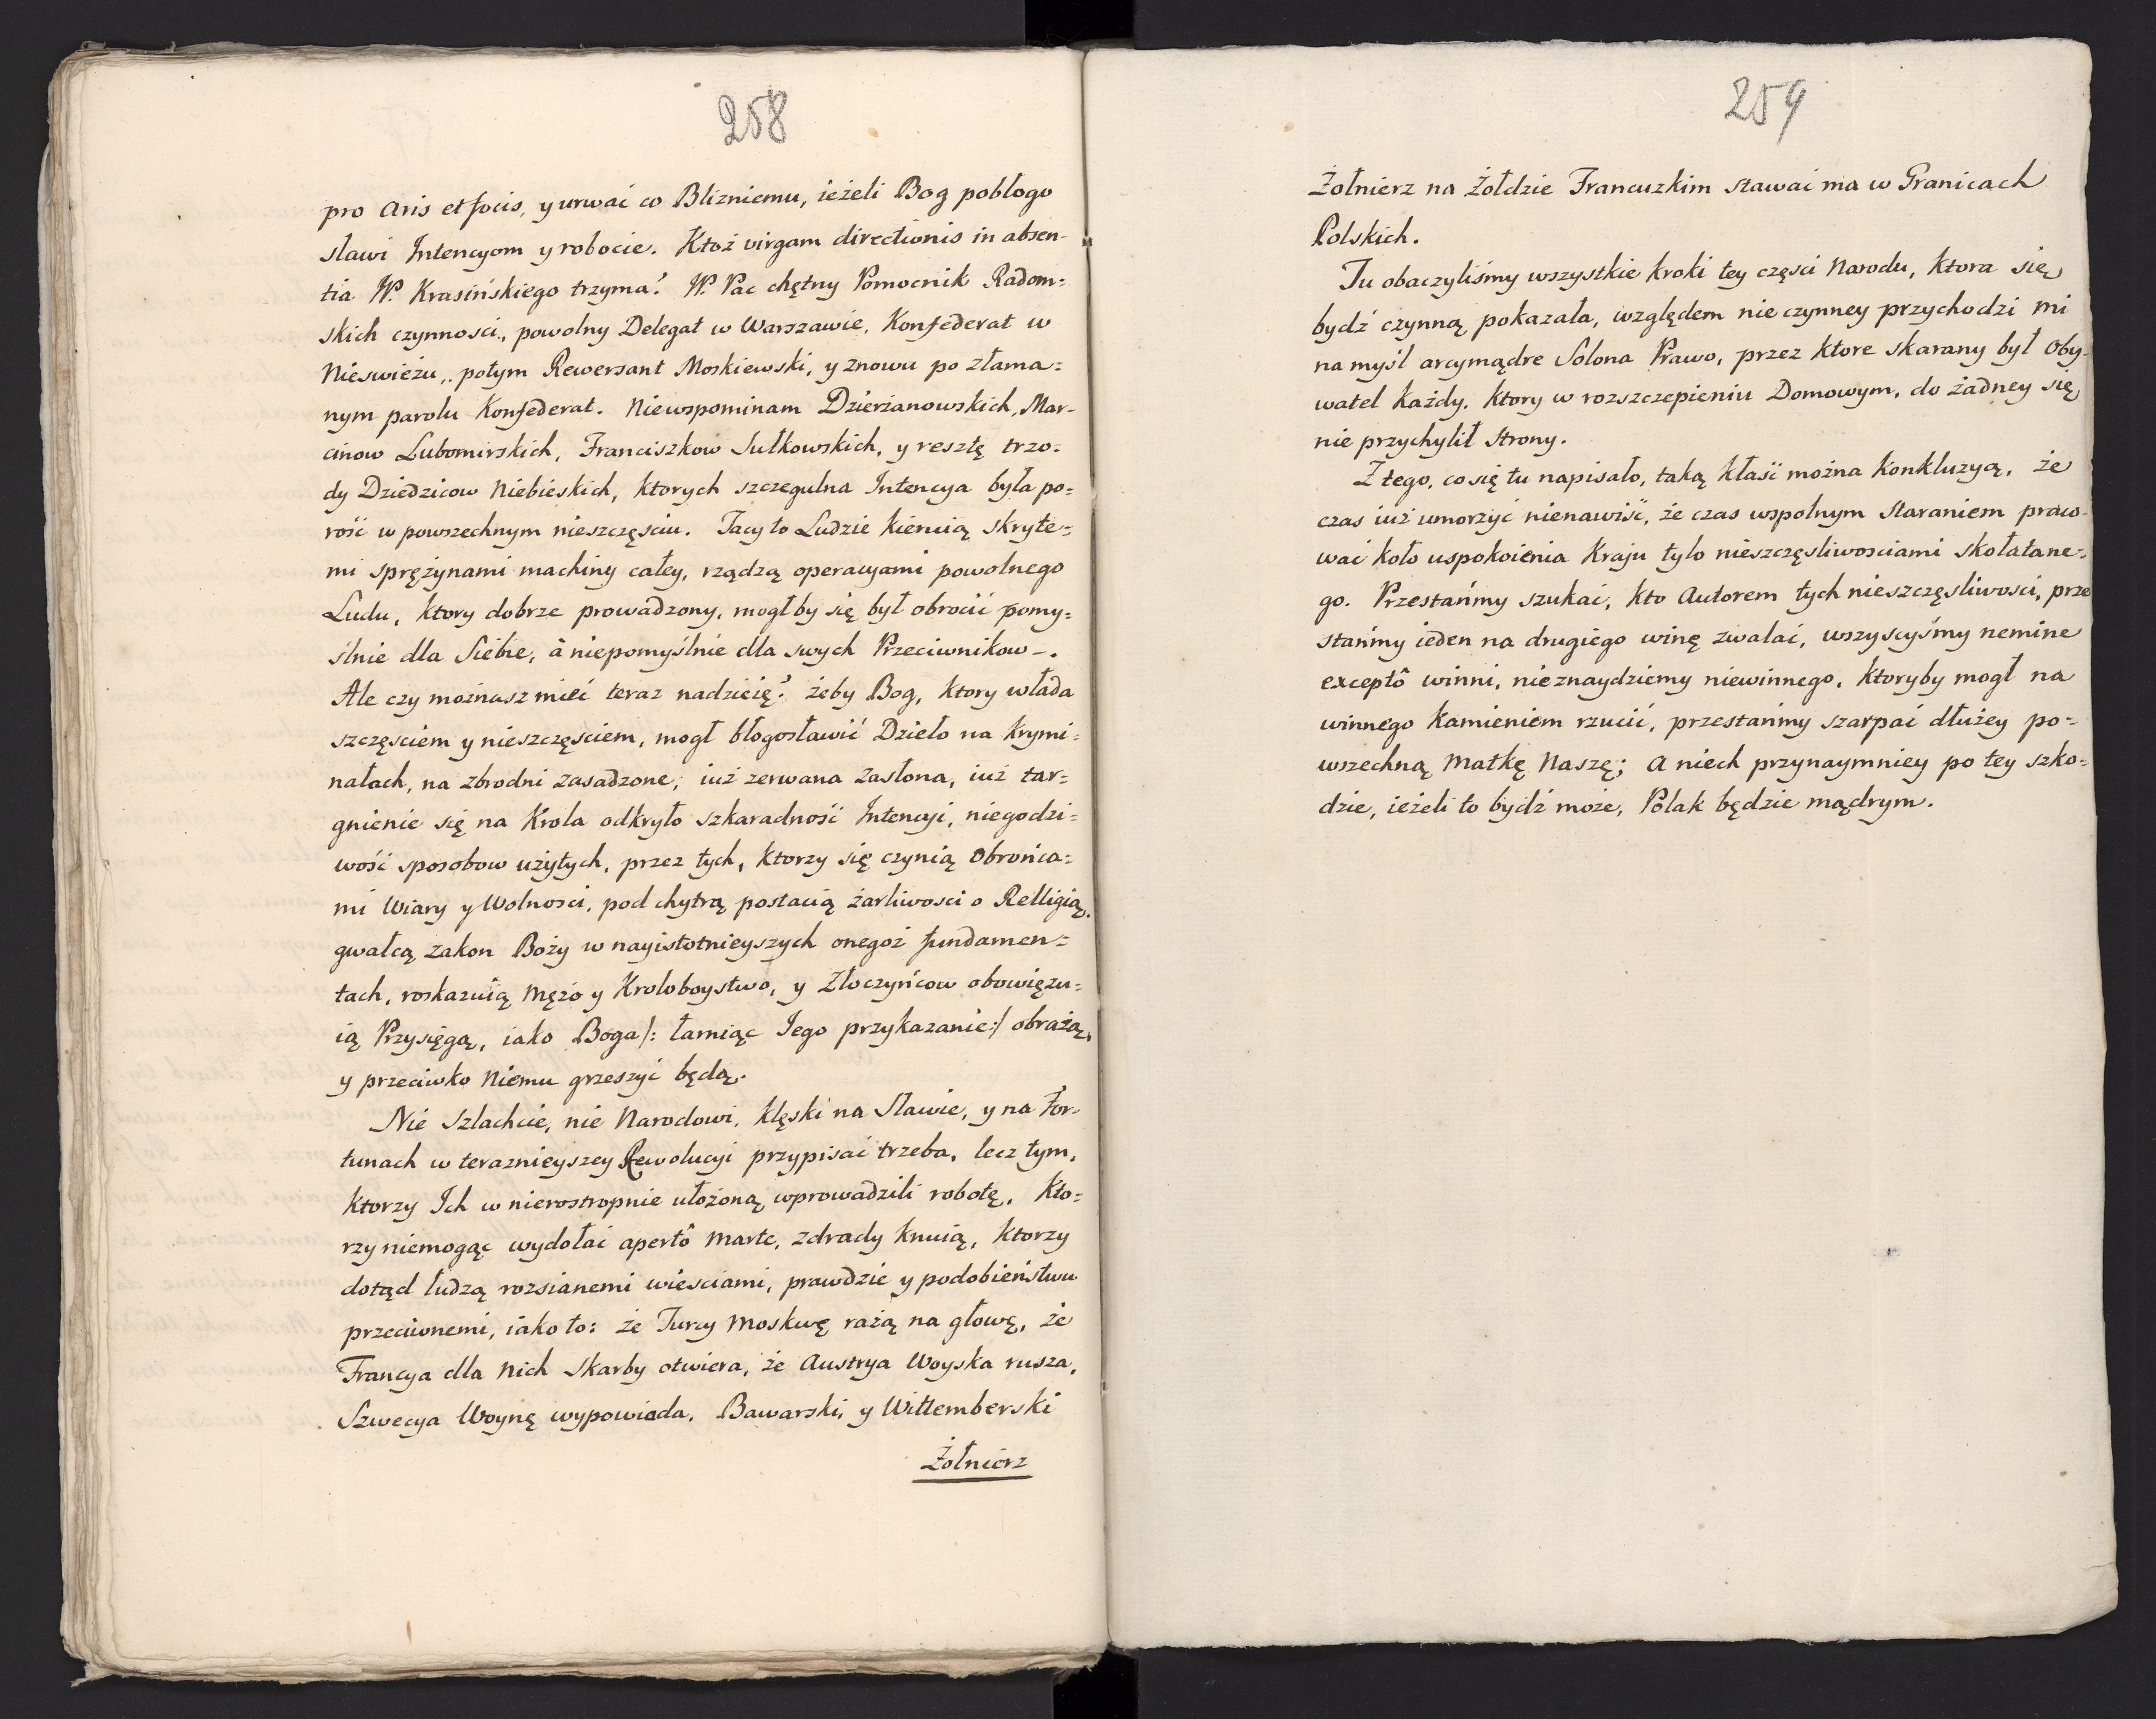 258
pro Aris et focis, y urwać co Blizniemu, ieżeli Bog pobłogo
sławi Intencyom y robocie. Ktoż virgam directionis in absen-
tia W. Krasińskiego trzyma? W. Pac chętny Pomocnik Radom=
skich czynnosci, powolny Delegat w Warszawie, Konfederat w
Nieswieżu, potym Rewersant Moskiewski, y znowu po złama=
nym parolu Konfederat. Niewspominam Dzierżanowskich, Mar-
cinow Lubomirskich, Franciszkow Sułkowskich, y resztę trzo=
dy Dziedzicow Niebieskich, ktorych szczegulna Intencya była po=
rość w powszechnym nieszczęsciu. Tacy to Ludzie kieruią skryte=
mi sprężynami machiny całey, rządzą operacyami powolnego
Ludu, ktory dobrze prowadzony, mogłby się był obrocić pomy=
ślnie dla Siebie, à niepomyślnie dla swych Przeciwnikow-.
Ale czy możnasz mieć teraz nadzieię? żeby Bog, ktory włada
szczęsciem y nieszczęsciem, mogł błogosławić Dzieło na Krymi=
nałach, na zbrodni zasadzone; iuż zerwana zasłona, iuż tar=
gnienie się na Krola odkryło szkaradność Intencyi, niegodzi=
wość sposobow użytych, przez tych, ktorzy się czynią Obrońca=
mi Wiary y Wolnosci, pod chytrą postacią żarliwosci o Relligią,
gwałcą zakon Boży w nayistotnieyszych onegoż fundamen=
tach, roskazuią Mężo y Kroloboystwo, y Złoczyńcow obowięzu=
ią Przysięgą, iako Boga /: łamiąc Jego przykazanie:/ obrażą,
y przeciwko Niemu grzeszyć będą.
Nie Szlachcie, nie Narodowi, klęski na Sławie, y na For-
tunach w teraznieyszey Rewolucyi przypisać trzeba, lecz tym,
ktorzy Ich w nierostropnie ułożoną wprowadzili robotę, Kto=
rzy niemogąc wydołać apertô Marte, zdrady knuią, ktorzy
dotąd łudzą rozsianemi wiesciami, prawdzie y podobieństwu
przeciwnemi, iako to: że Turcy Moskwę rażą na głowę, że
Francya dla Nich Skarby otwiera, że Austrya Woyska rusza,
Szwecya Woynę wypowiada, Bawarski, y Wittemberski
Żołnierz
259
Żołnierz na Żołdzie Francuzkim stawać ma w Granicach
Polskich.
Tu obaczyliśmy wszystkie kroki tey częsci Narodu, ktora się
bydź czynną pokazała, względem nie czynney przychodzi mi
na myśl arcymądre Solona Prawo, przez ktore skarany był Oby-
watel każdy, ktory w rozszczepieniu Domowym, do żadney się
nie przychylił Strony.
Z tego, co się tu napisało, taką kłaść można Konkluzyą, że
czas iuż umorzyć nienawiść, że czas wspolnym Staraniem praco-
wać koło uspokoienia Kraju tylo nieszczęsliwosciami skołatane=
go. Przestańmy szukać, kto Autorem tych nieszczęsliwosci, prze
stańmy ieden na drugiego winę zwalać, wszyscyśmy nemine
exceptô winni, nieznaydziemy niewinnego, ktoryby mogł na
winnego kamieniem rzucić, przestańmy szarpać dłużey po=
wszechną Matkę Naszę; A niech przynaymniey po tey szko=
dzie, ieżeli to bydź może, Polak będzie mądrym.